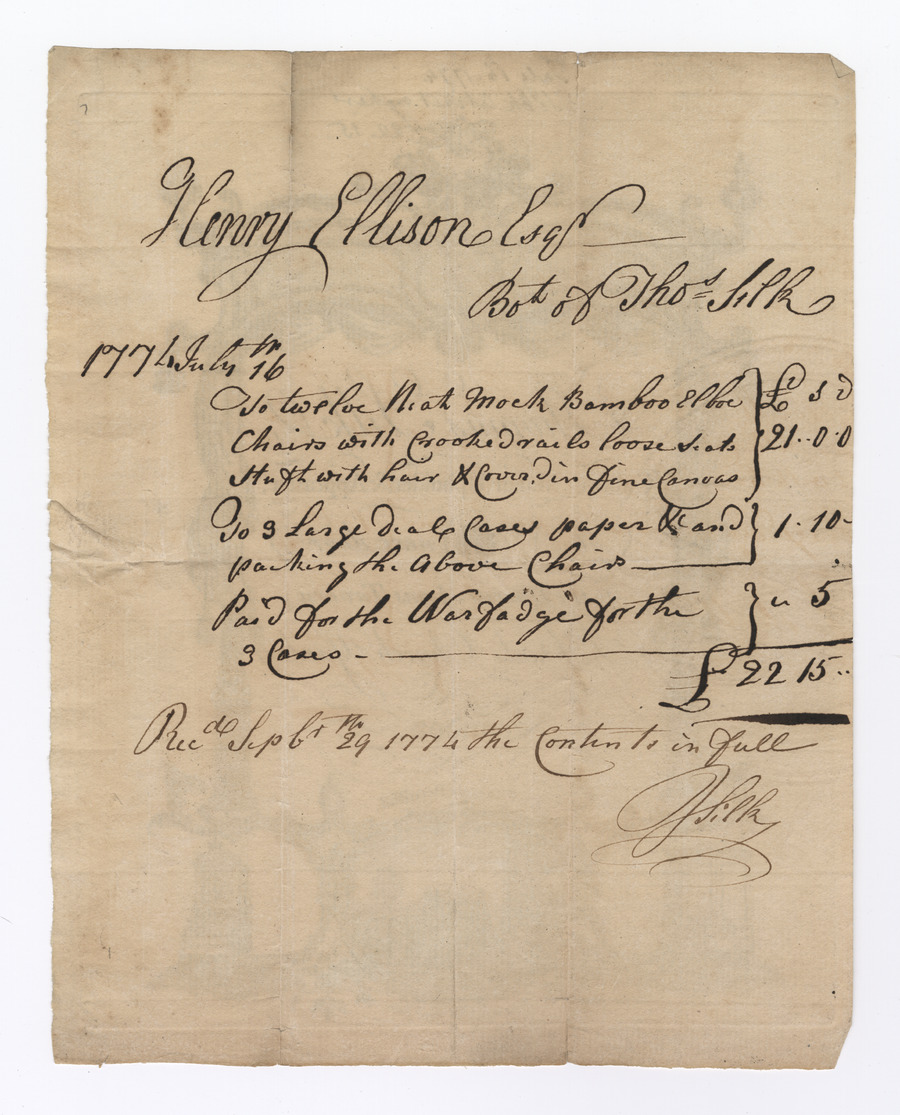 Henry Ellison Esqr
Bot of Thos Silk
1774 July 16th
To twelve Neat Mock Bamboo Elboe £ s d
Chairs with Crooked rails loose seats 21..0.0
Stuft with hair & Cover'd in fine Canvas
To 3 Large deal Cases paper &c and 1.10-
packing the Above Chairs
Paid for the Warfadge for the " 5
3 Cases -
£ 22 15..
Recd Sepbr 29th 1774 the Contents in full
T Silk